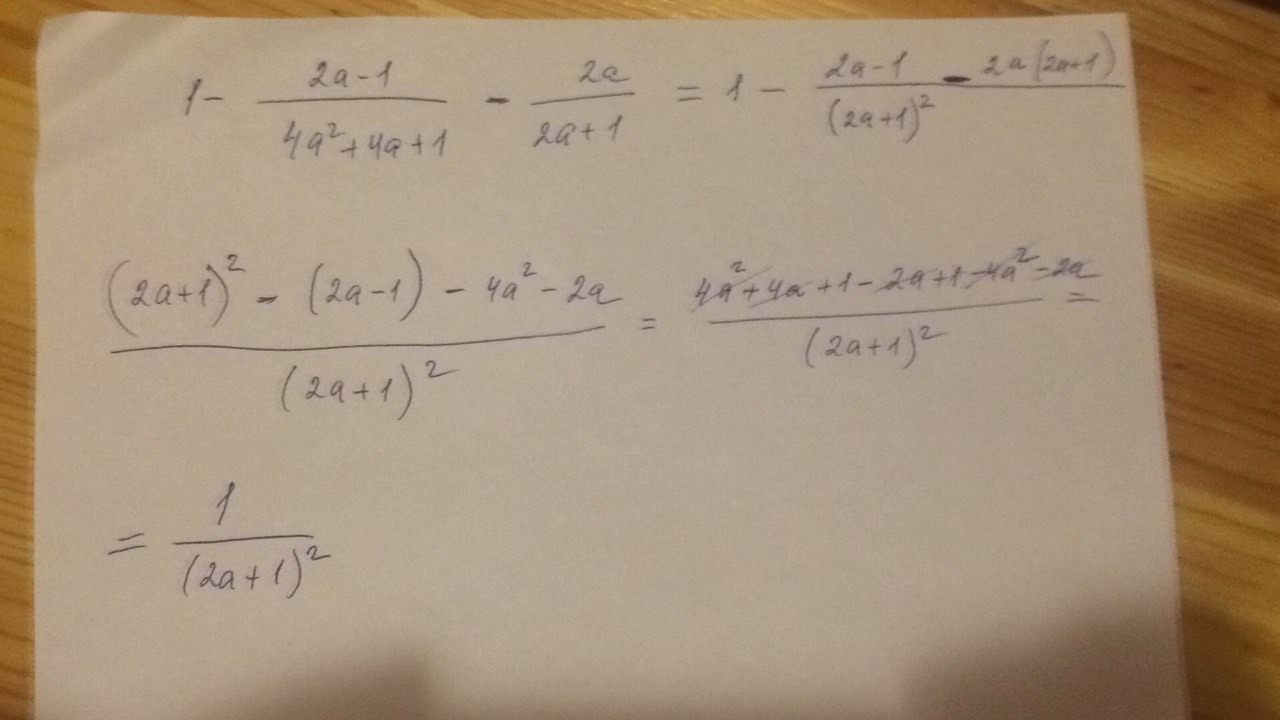 1 - (2a-1)/(4a²+4a+1) - 2a/(2a+1) = 1 - (2a-1 - 2a(2a+1))/(2a+1)²
((2a+1)² - (2a-1) - 4a² - 2a)/(2a+1)² = (4a²+4a+1-2a+1-4a²-2a)/(2a+1)² =
= 1/(2a+1)²